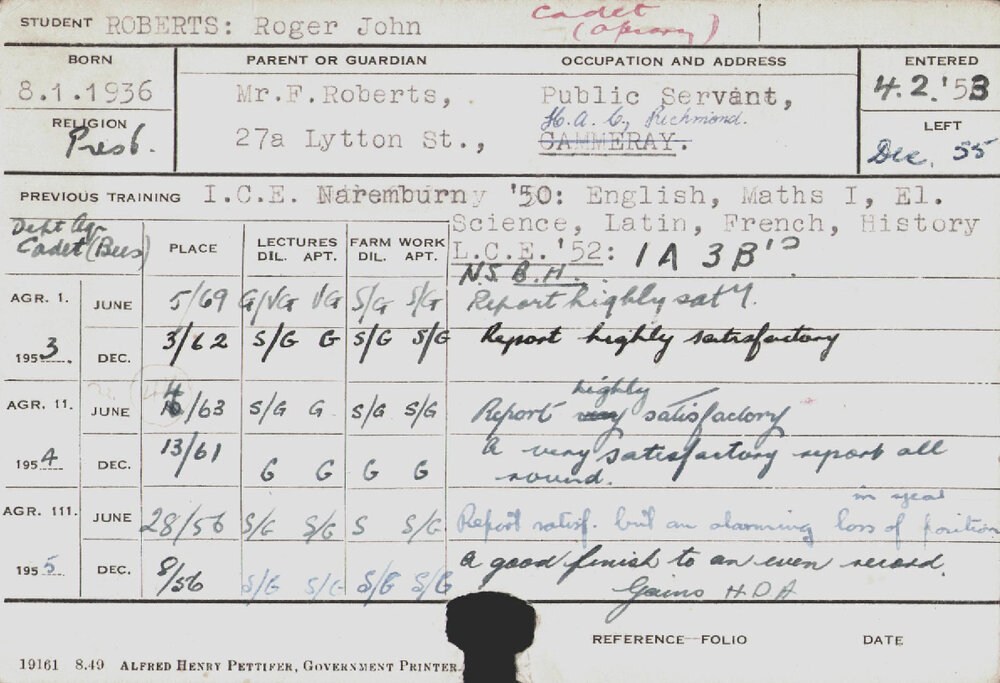 STUDENT ROBERTS: Roger John Cadet
(Apiary)
BORN PARENT OR GUARDIAN OCCUPATION AND ADDRESS ENTERED
8.1.1936 Mr.F.Roberts, Public Servant, 4.2.'53
RELIGION H.A.C., Richmond. LEFT
Presb. 27a Lytton St., CAMMERAY. Dec. 55
PREVIOUS TRAINING I.C.E. Naremburny '50: English, Maths I, El.
Science, Latin, French, History
L.C.E. '52: 1A 3B's
N.S.B.H.
Dept Ag.
Cadet (Bees)
PLACE LECTURES FARM WORK
DIL. APT. DIL. APT.
AGR. 1. JUNE 5/69 G/VG VG S/G S/G Report highly saty.
1953. DEC. 3/62 S/G G S/G S/G Report highly satisfactory
AGR. 11. JUNE /63 S/G G S/G S/G Report highly satisfactory
1954 DEC. 13/61 G G G G A very satisfactory report all
round.
AGR. 111. JUNE 28/56 S/G S/G S S/G Report satisf. but an alarming loss of position
in year
1955. DEC. 8/56 S/G S/G S/G S/G A good finish to an even record.
Gains HDA
REFERENCE FOLIO DATE
19161 8.49 ALFRED HENRY PETTIFER, GOVERNMENT PRINTER.